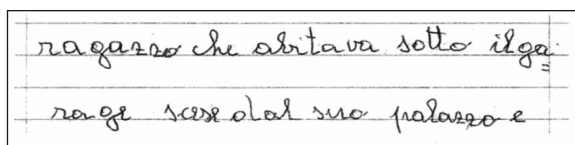 ragazzo che abitava sotto il ga=
rage scese dal suo palazzo e